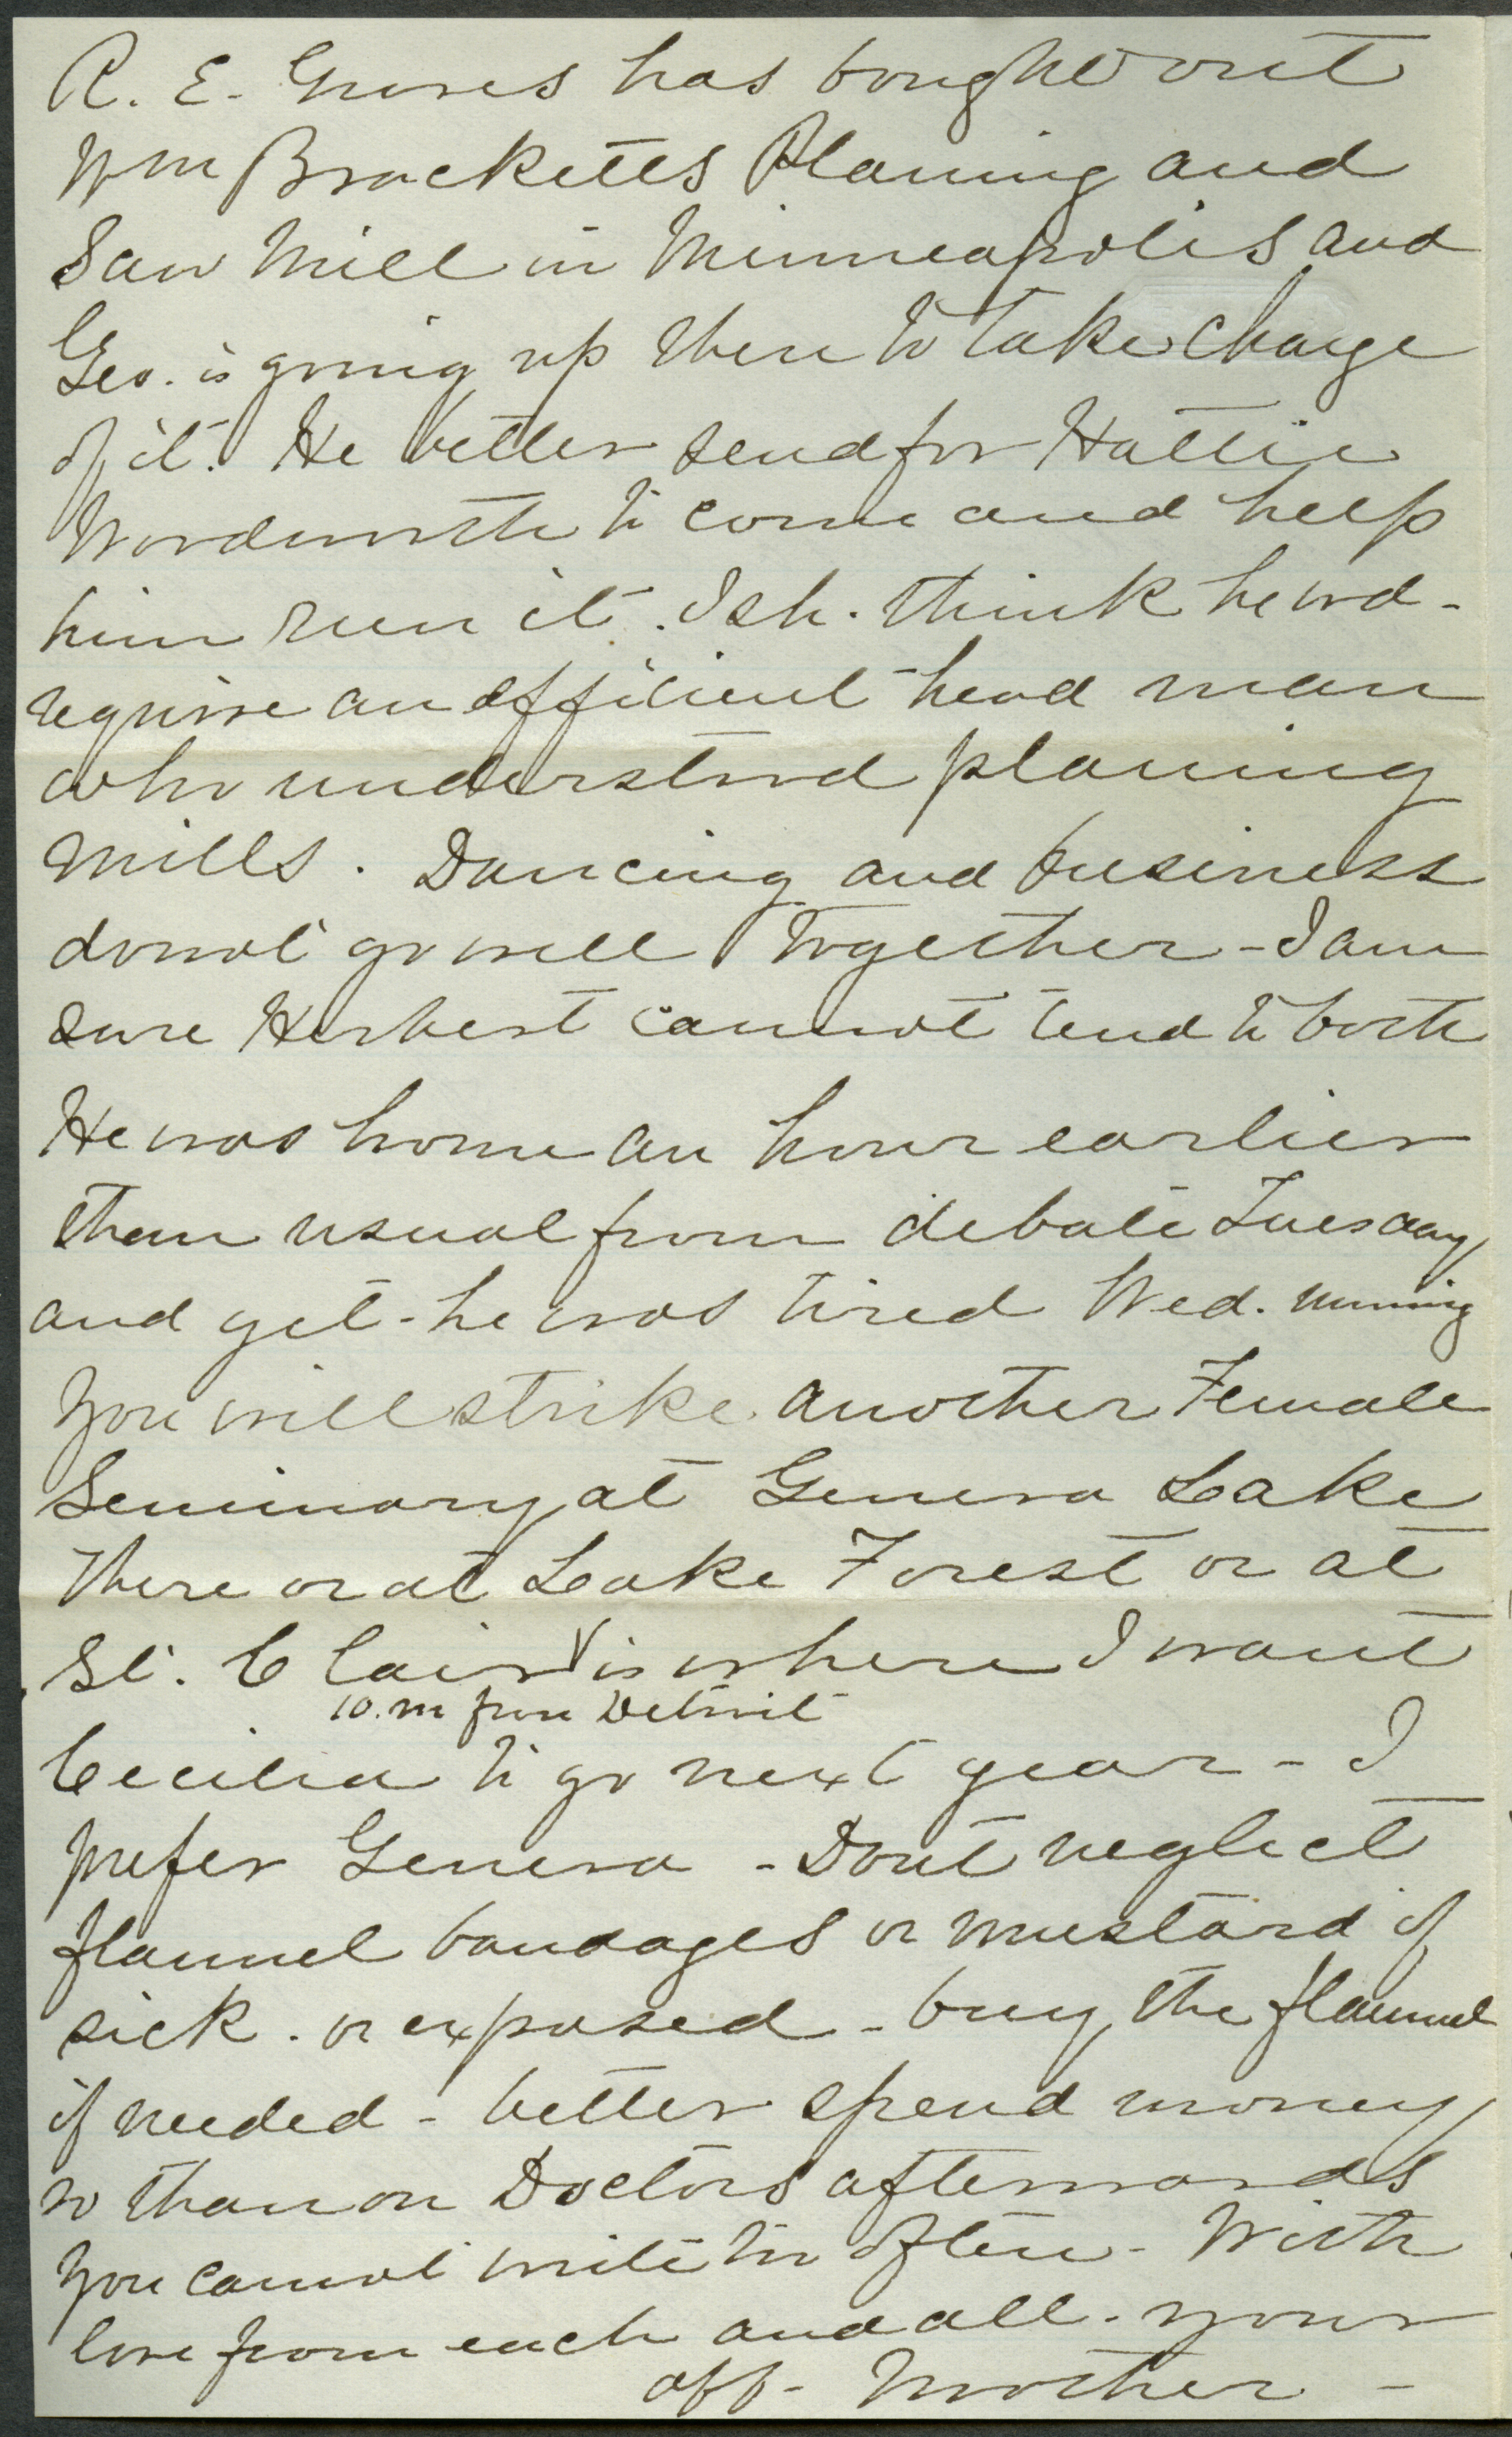 R. E. Graves has bought out
Wm Bracketts Planing and
Saw Mill in Minneapolis and
Geo. is going up there to take charge
of it. He better send for Hattie
Wordworth to come and help
him run it. I sh. think he wd-
require an efficient head man
who understood planing
mills. Dancing and business
do not go well together - I am
sure Herbert cannot tend to both
He was home an hour earlier
than usual from debate Tuesday
and yet - he was tired Wed. morning
You will strike another Female
Seminary at Geneva Lake
There or at Lake Forest or at
St. Clair is where I want
10. m from Detroit
Cecilia to go next year - I
prefer Geneva - Dont neglect
flannel bandages or mustard if
sick. or exposed - buy the flannel
if needed - better spend money
so than on Doctors afterwards
You cannot write too often - With
love from each and all - your
aff - Mother -